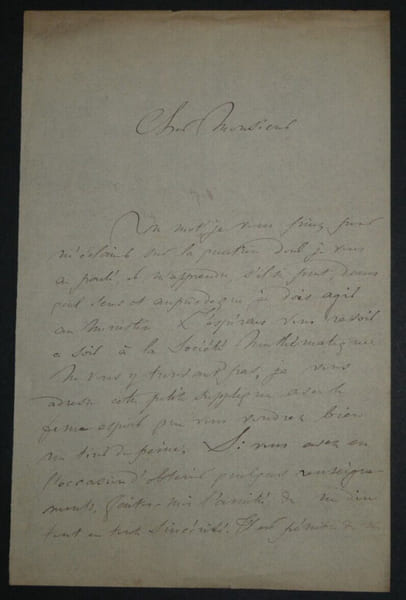 Cher Monsieur
Un mot, je vous prie, pour
m'éclairer sur la question dont je vous
ai parlé, et m'apprendre s'il se peut, dans
quel sens et auprès de qui je dois agir
au Ministère. J'espérais vous revoir
ce soir à la Société Mathématique
Ne vous y trouvant pas, je vous
adresse cette petite supplique avec le
ferme espoir que vous voudrez bien
me tirer de peine. Si vous avez eu
l'occasion d'obtenir quelques renseigne-
ments, faites-moi l'amitié de m'en
tout en toute sincérité. Il est pénible de